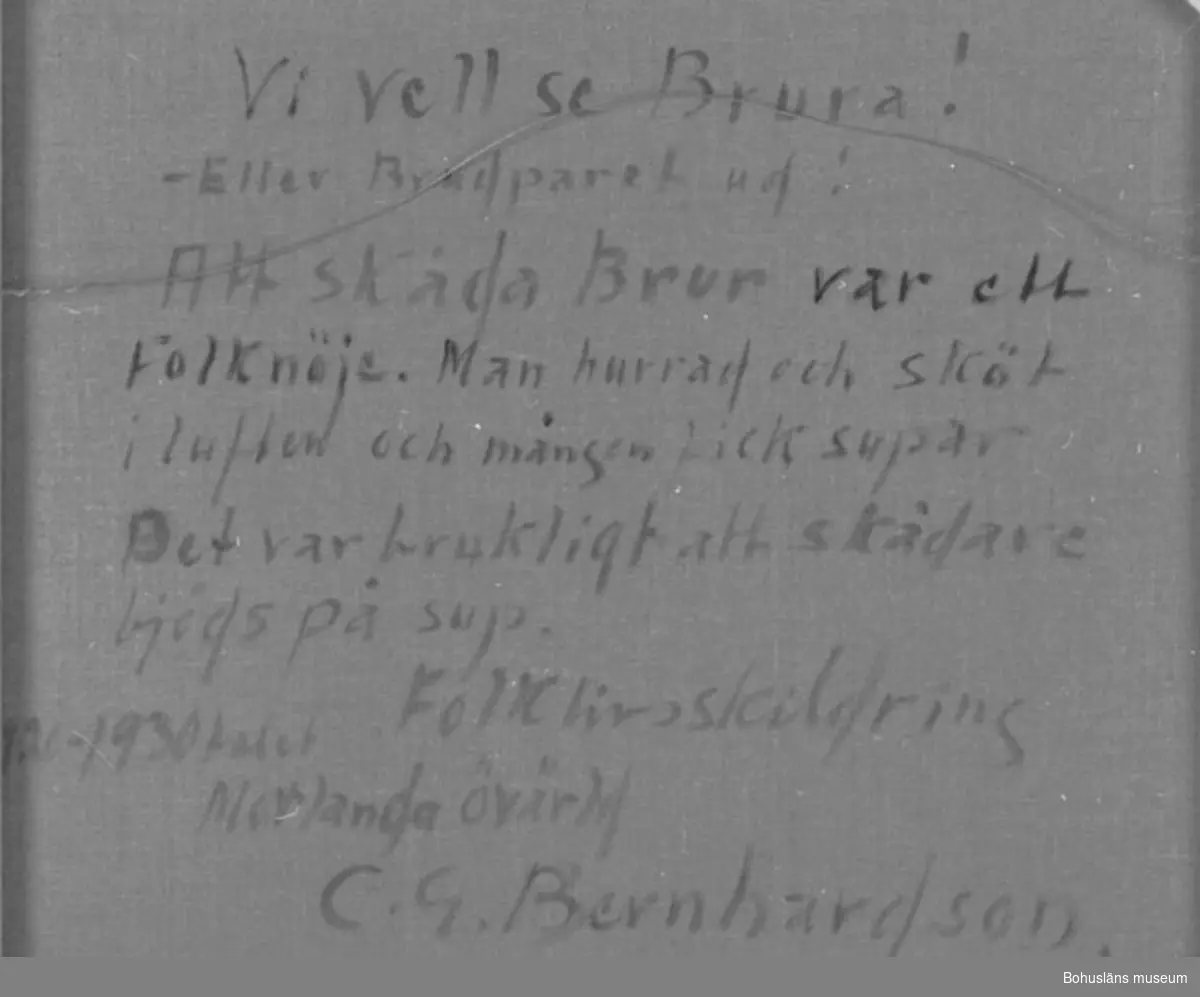 Vi vell se Brura!
- Eller Brudparet ud!
Att skåda Brur var ett
Folknöje. Man hurrad och sköt
i luften och mången fick supar
Det var brukligt att skådare
bjöds på sup.
Folklivsskildring
1930talet
Morlanda
C. G. Bernhardson.
Bohusläns museum